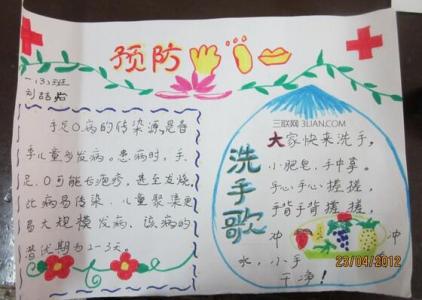 预防
一(3)班
手足O病的传染源,是春
季儿童多发病。患病时,手
足、O可能长疱疹,甚至发烧。
此病易传染、儿童聚集更
易大规模发病、该病的
潜伏期为2-3天。
三联网 3LIAN.COM
洗手歌
大家快来洗手,
小肥皂,手中拿。
手心手心搓搓,
手背手背搓搓,
冲 冲
水,小手
干净!
23/04/2012